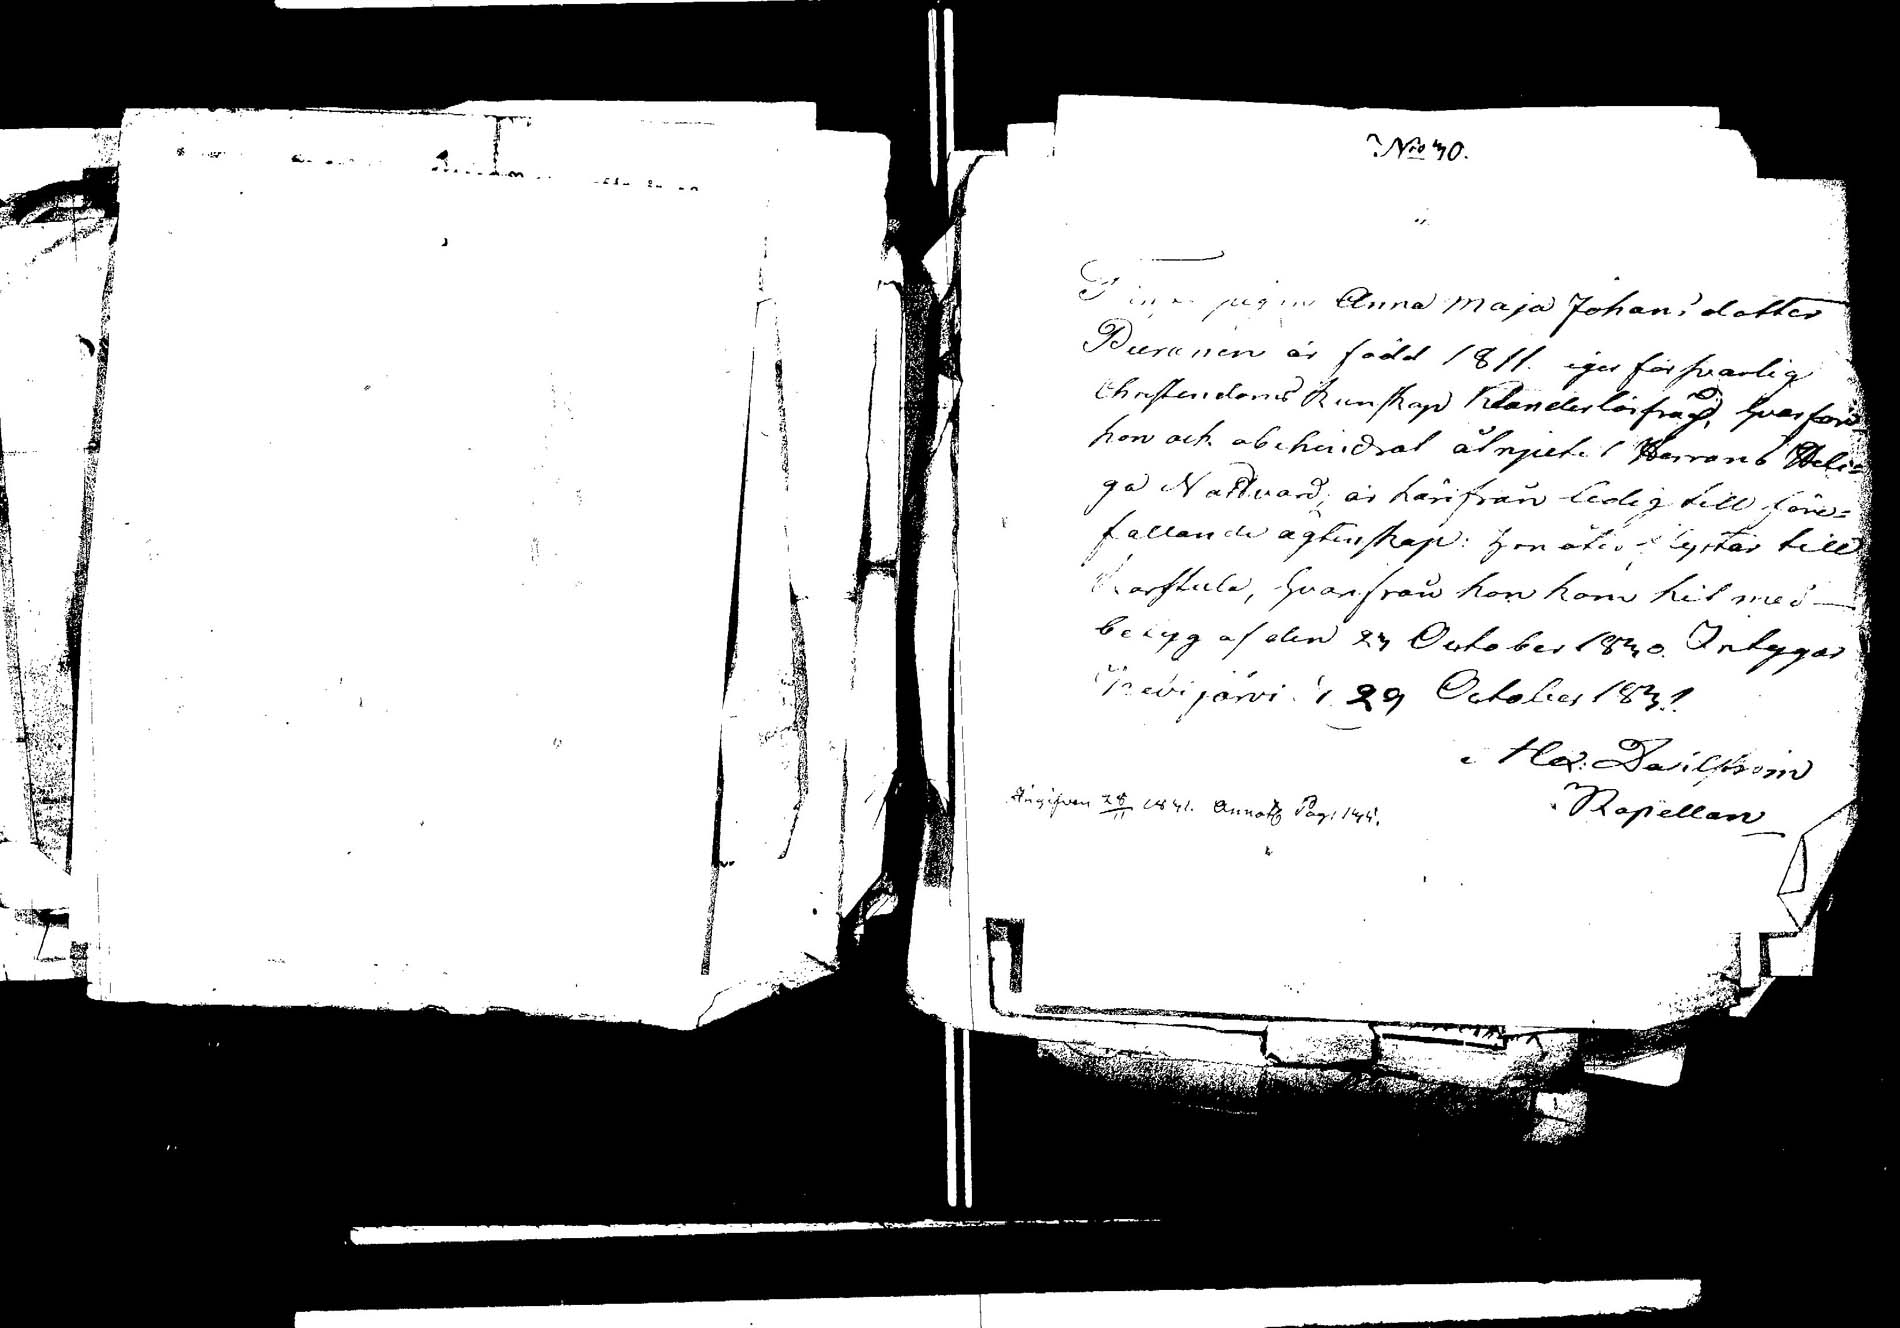 Nro 30.
pigan Anna Maja Johansdotter
Puranen är född 1811. eger försvarlig
Christendoms kunskap Klanderlös frägd, hvarföre
hon ock obehindrat åtnjutit Herrans Heli=
ga Nattvard, är härifrån ledig till före=
fallande ägtenskap: hon åter flyttar till
Karstula, hvarifrån hon kom hit med
betyg af den 23 October 1830. Intygar
Kevijärvi d. 29 October 1831.
Alex:
Kapellan
Angifven 28/11 1831. Annot. Pag: